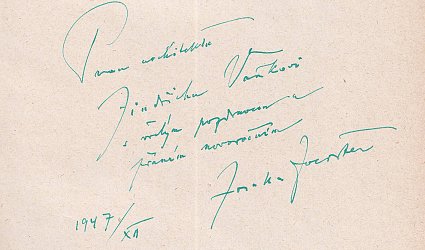 Panu architektu
Jindřichu Vaňkovi
s vřelým pozdravem a
přáním novoročním
1947/XII